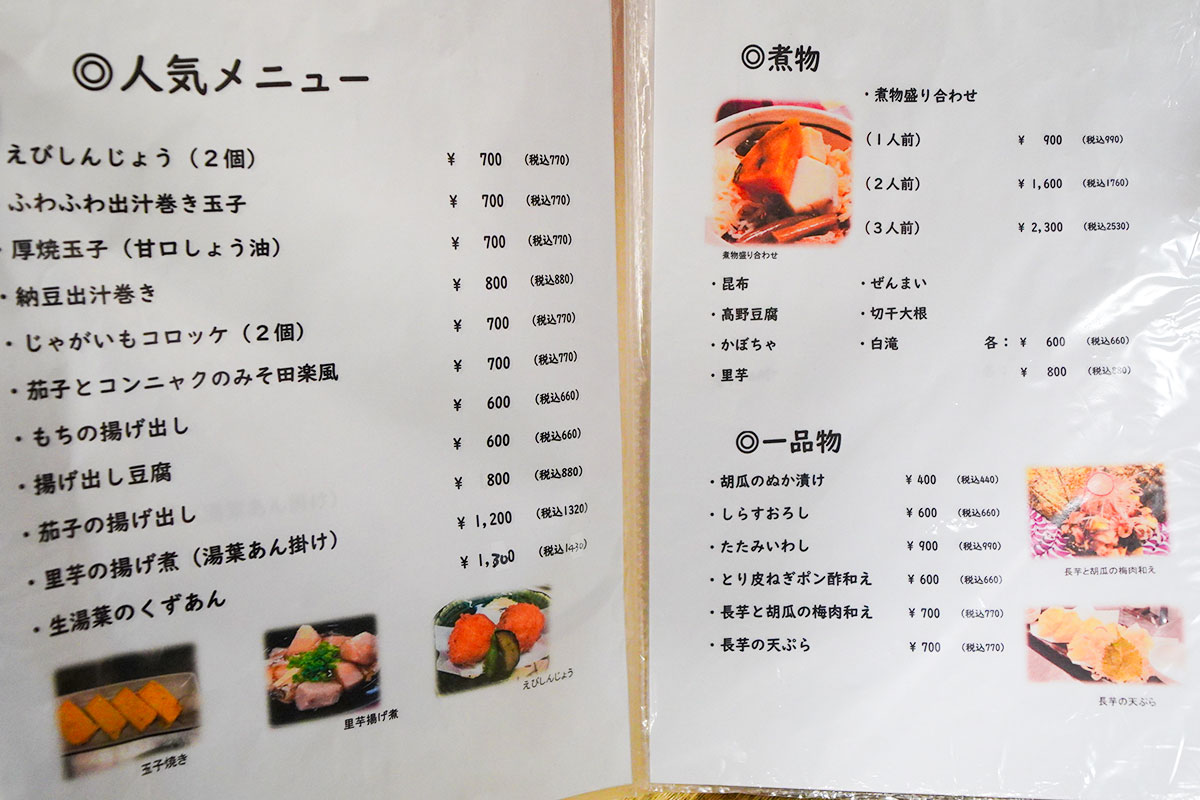 ◎人気メニュー
えびしんじょう（２個） ¥ 700 （税込770）
ふわふわ出汁巻き玉子 ¥ 700 （税込770）
・厚焼玉子（甘口しょう油） ¥ 700 （税込770）
・納豆出汁巻き ¥ 800 （税込880）
・じゃがいもコロッケ（２個） ¥ 700 （税込770）
・茄子とコンニャクのみそ田楽風 ¥ 700 （税込770）
・もちの揚げ出し ¥ 600 （税込660）
・揚げ出し豆腐 ¥ 600 （税込660）
・茄子の揚げ出し ¥ 800 （税込880）
・里芋の揚げ煮（湯葉あん掛け） ¥ 1,200 （税込1320）
・生湯葉のくずあん ¥ 1,300 （税込1430）
玉子焼き
里芋揚げ煮
えびしんじょう
◎煮物
・煮物盛り合わせ
（１人前） ¥ 900 （税込990）
（２人前） ¥ 1,600 （税込1760）
（３人前） ¥ 2,300 （税込2530）
煮物盛り合わせ
・昆布 ・ぜんまい
・高野豆腐 ・切干大根
・かぼちゃ ・白滝 各： ¥ 600 （税込660）
・里芋 ¥ 800 （税込880）
◎一品物
・胡瓜のぬか漬け ¥ 400 （税込440）
・しらすおろし ¥ 600 （税込660）
・たたみいわし ¥ 900 （税込990）
・とり皮ねぎポン酢和え ¥ 600 （税込660）
・長芋と胡瓜の梅肉和え ¥ 700 （税込770）
・長芋の天ぷら ¥ 700 （税込770）
長芋と胡瓜の梅肉和え
長芋の天ぷら